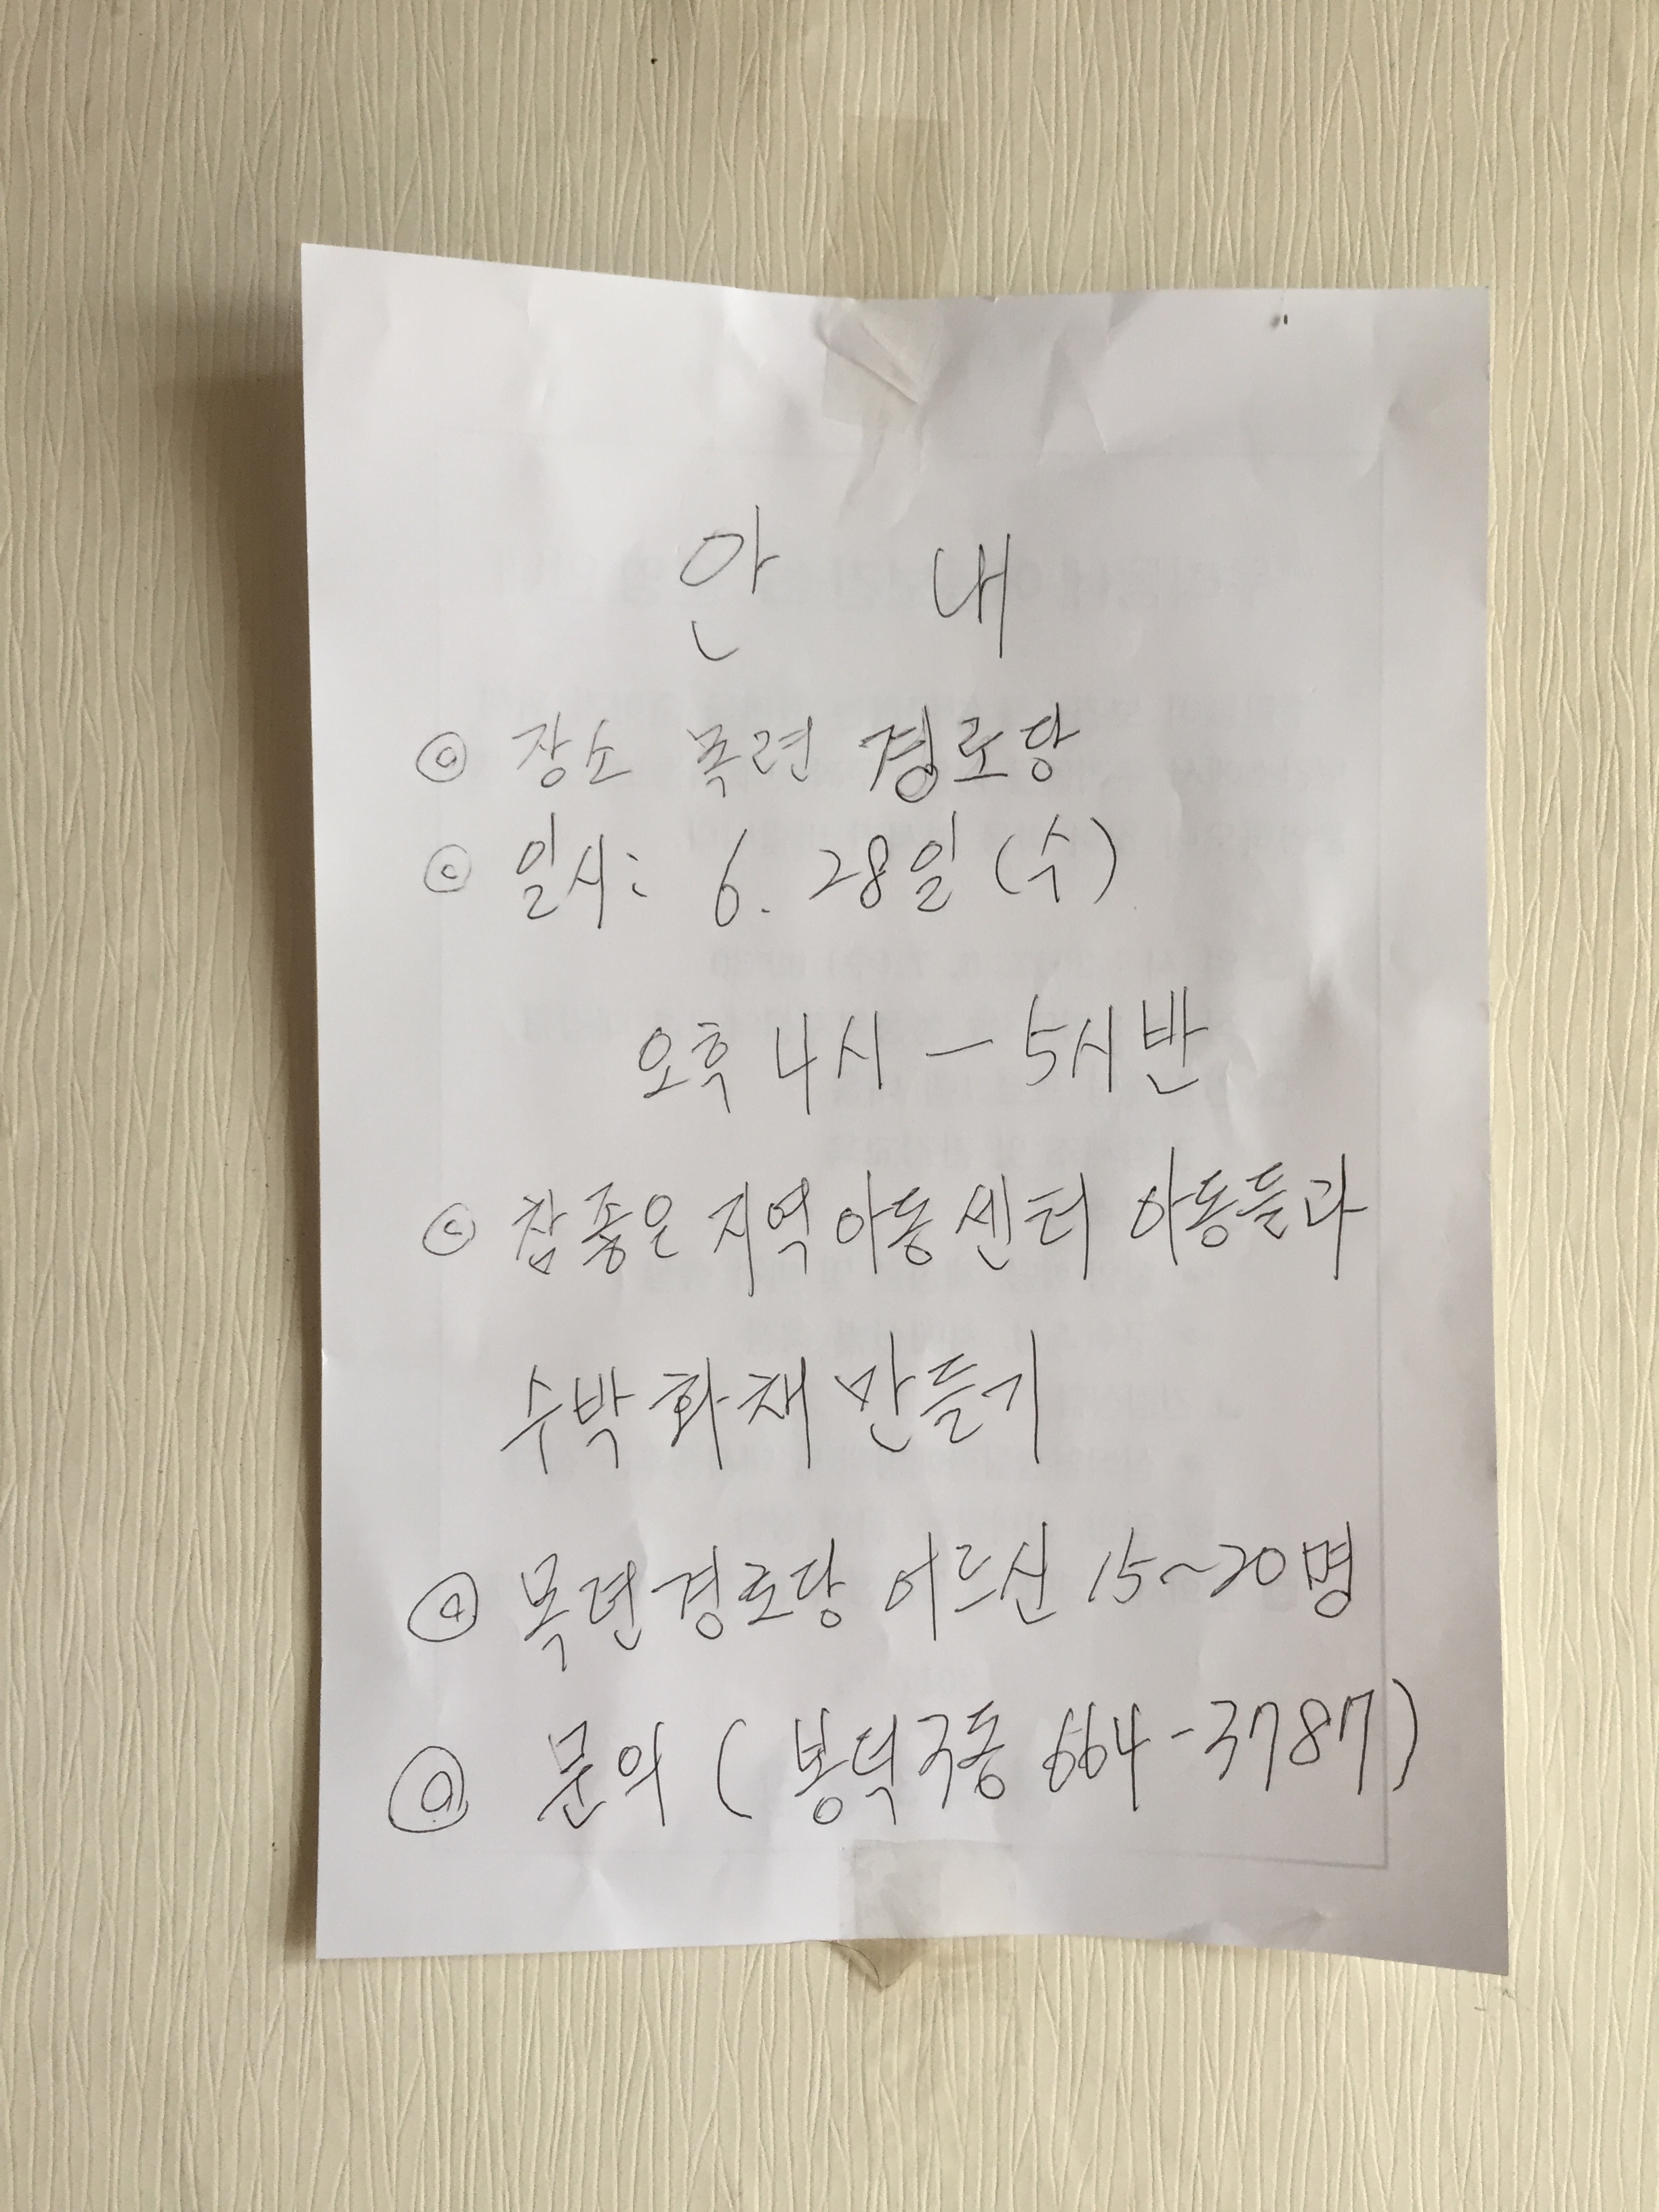 안 내
◎ 장소 목련 경로당
◎ 일시: 6. 28일 (수)
오후 4시 - 5시반
◎ 참좋은 지역아동센터 아동들과
수박화채 만들기
◎ 목련경로당 어르신 15~20명
◎ 문의 (봉덕3동 664-3787)